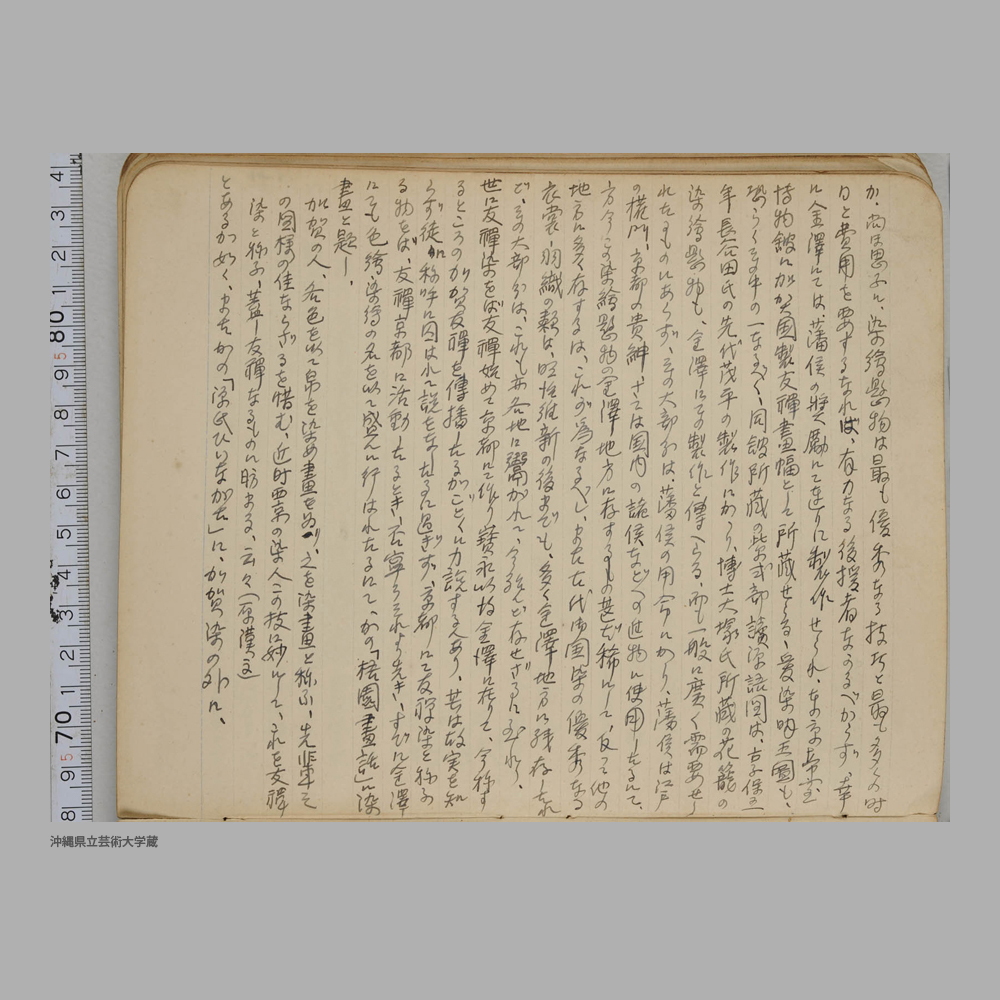 か、尚ほ思ふに、染繪懸物は最も優秀なる技巧と最も多くの時
日と費用を要するなれば、有力なる後援者なかるべからず、幸
に金澤にては、藩侯の奨勵にて連りに製作せられ、東京帝室
博物舘に加賀国製友禪畫幅として所藏せらる、愛染明王圖も、
恐らくその一なるべく、同舘所藏の紫式部讀源語圖は、享保三
年長谷田氏の先代茂平の製作にかゝり、博士大塚氏所藏の花籠の
染繪懸物も、金澤にての製作と傳へらる、而も一般に廣く需要せら
れたるものにあらず、その大部分は、藩侯の用命にかゝり、藩侯は江戸
の槐門、京都の貴紳、さては国内の諸侯などへの進物に使用したるにて、
方今この染繪懸物の金澤地方に存するもの甚だ稀にして、反つて他の
地方に多く存するは、これが爲なるべし、また古代御国染の優秀なる
衣裳、羽織の類は、明治維新の後までも、多く金澤地方に残存したれ
ど、その大部分は、これも亦各地に鬻がれて、今殆んど存せざるに至れり、
世に友禪染をば友禪始めて京都にて作り寶永以後金澤に在りて、今称す
るところの加賀友禪を傳播したるがごとくに力説する人あり、共は故実を知
らず徒に称呼に囚はれて説をなしたるに過ぎず、京都にて友禪染と称ふ
る物をば、友禪京都に活動したるとき、否寧ろそれより先き、すでに金澤
にても色繪、染繪の名を以て盛んに行はれたるにて、かの「梧園畫話」に染
畫と題し、
加賀の人、各色を以て帛を染め畫を為り、之を染畫と称ふ、先輩そ
の圖様の佳ならざるを惜む、近时西京の染人この技に妙にして、これを友禪
染と称ふ、蓋し友禪なるものに昉まる、云々（原漢文）
とあるが如く、またかの「源氏ひいながた」に、加賀染の外に、
沖縄県立芸術大学蔵